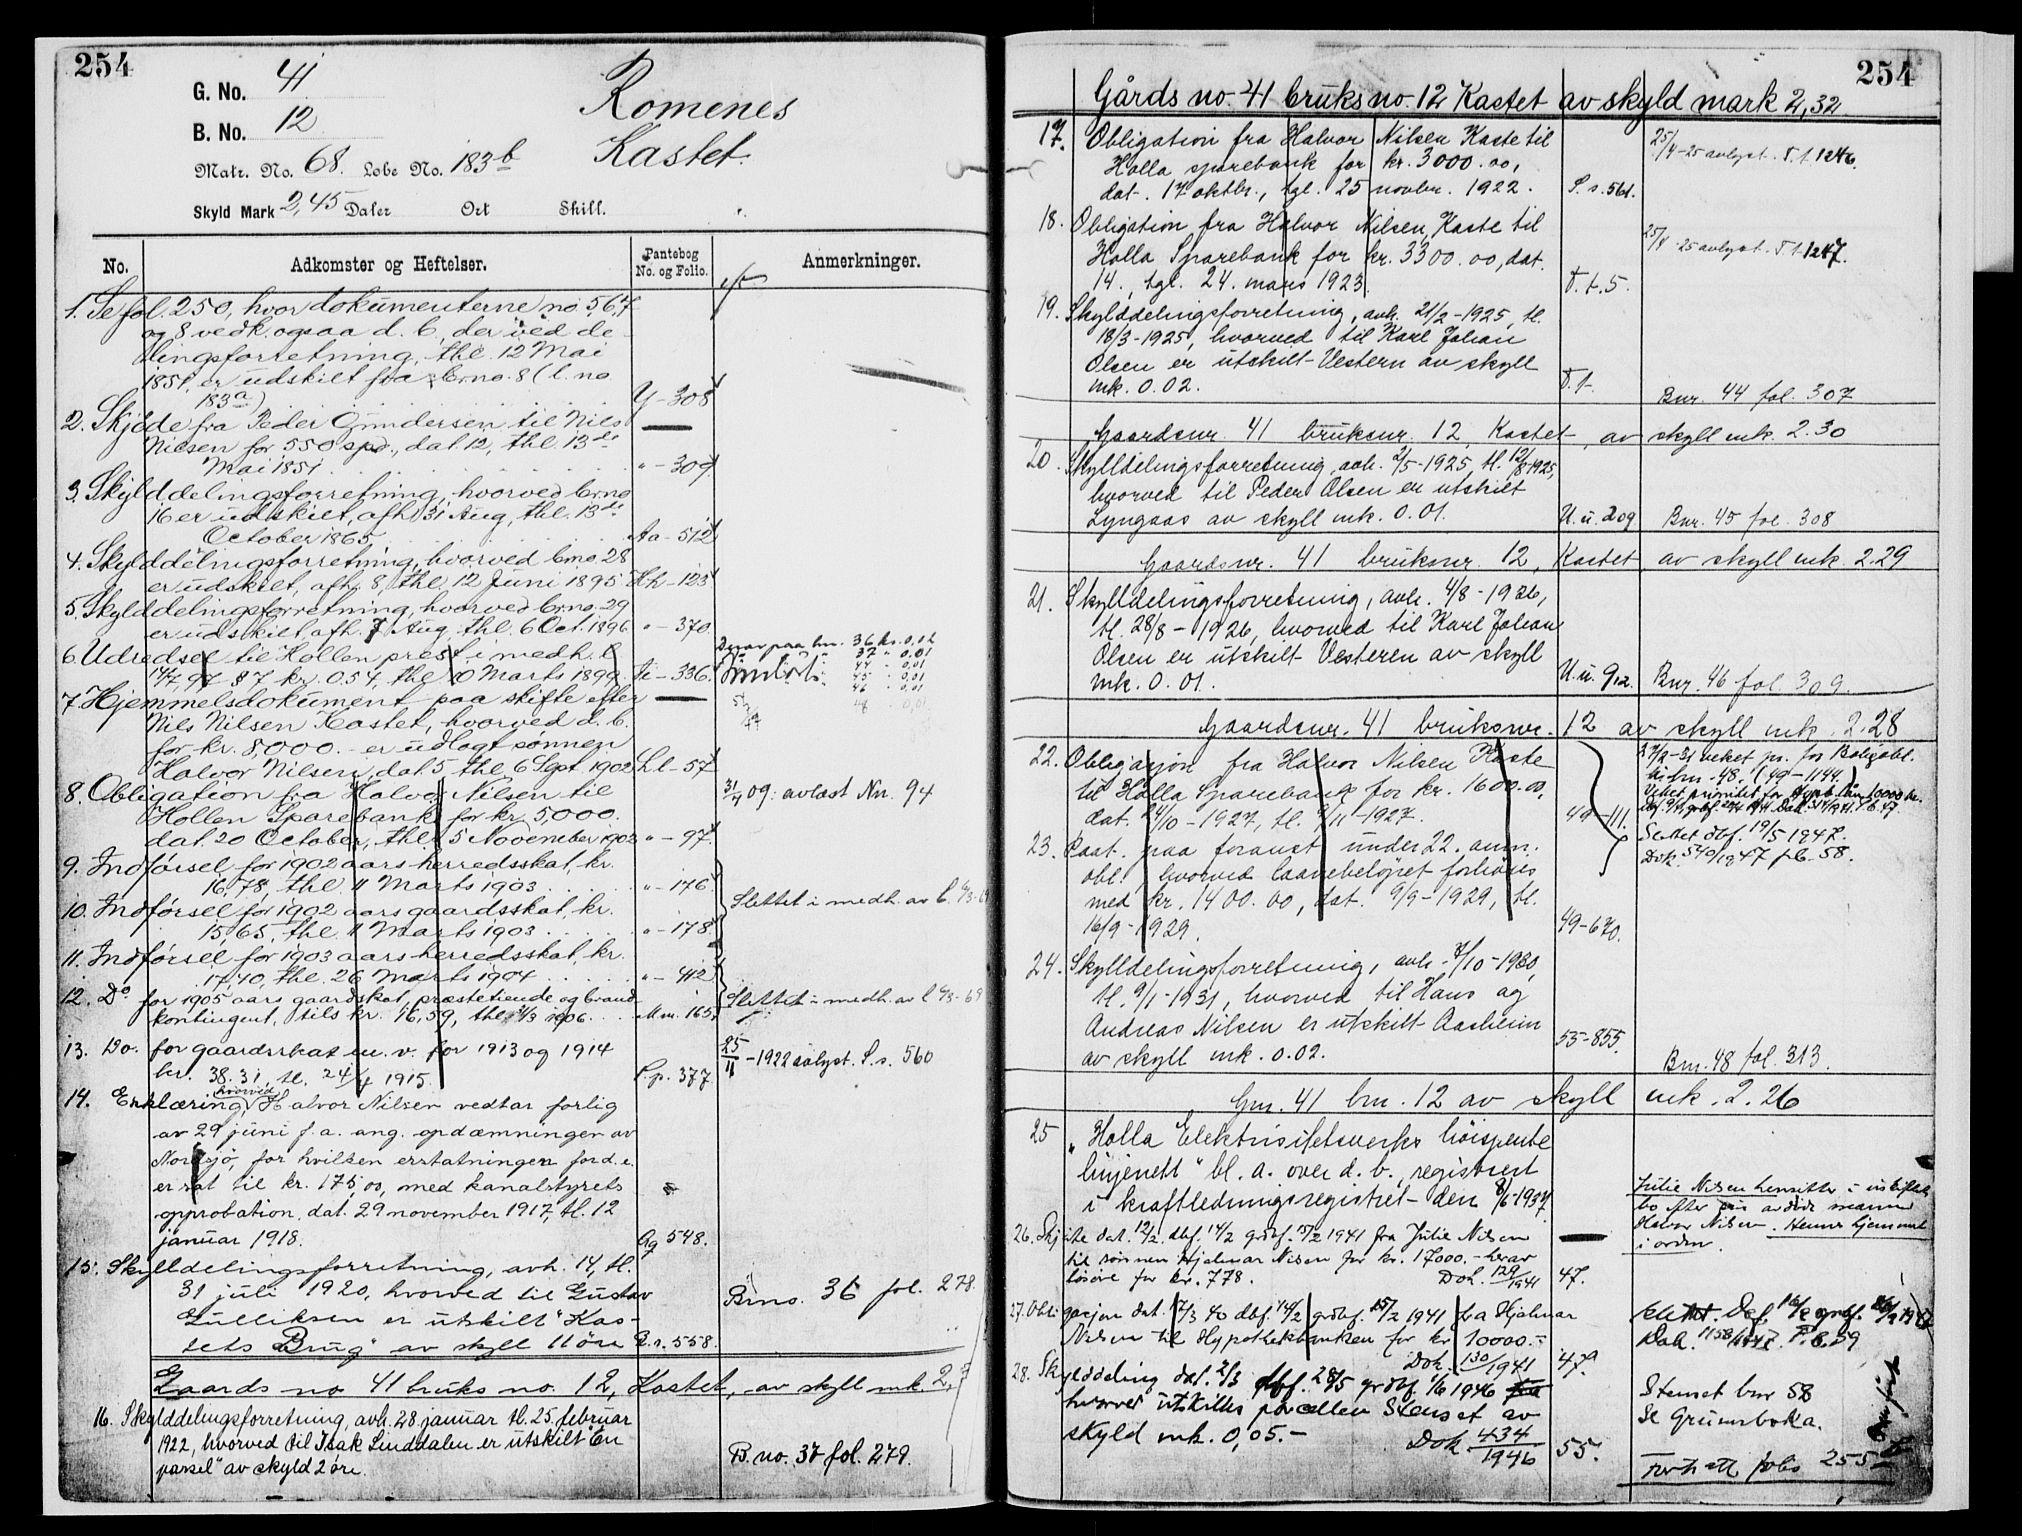 254
G. No. 41
B. No. 12
Romenes
Kastet.
Matr. No. 68. Løbe No. 183 b
Skyld Mark 2,45 Daler Ort Skill.
No.
Adkomster og Heftelser.
Pantebog No. og Folio.
Anmerkninger.
1. Se fol. 250, hvor dokumenterne no 5,6,7
og 8 vedk. ogsaa d. b., der ved de-
lingsforretning, thl. 12 Mai
1851, er udskilt fra brno. 8 (l. no
183 a) Y - 308
2. Skjøde fra Peder Gundersen til Nils
Nielsen for 550 spd., dat. 12, thl. 13de
Mai 1851 " - 309
3. Skylddelingsforretning, hvorved brno
16 er udskilt, afh. 31 Aug., thl. 13de
October 1865 Aa - 512
4. Skylddelingsforretning, hvorved brno. 28
er udskilt, afh. 8, thl. 12 Juni 1895 Hh - 123
5. Skylddelingsforretning, hvorved brno. 29
er udskilt, afh. 7 Aug. thl. 6 Oct. 1896 " - 370
6. Udredsel til Hollen prest i medh. l.
14/7, 97 § 7 kr. 0.54, thl. 10 Marts 1899 Ii - 336.
36 kr. 0,02
37 " 0,01
44 " 0,01
45 " 0,01
46 " 0,01
48 " 0,01
7. Hjemmelsdokument paa skifte efter
Nils Nilsen Kastet, hvorved d. b.
for kr. 8,000.- er udlagt sønnen
Halvor Nilsen, dat. 5 thl. 6 Sept 1902 Ll - 57
8. Obligation fra Halvor Nilsen til
Hollen Sparebank for kr. 5,000.
dat. 20 October, thl. 5 November 1902 " - 97
31/4 09: avlæst Nn. 94
9. Indførsel for 1902 aars herredsskat, kr.
16,78, thl. 11 Marts 1903 " - 176
10. Indførsel for 1902 aars gaardsskat, kr.
15,65, thl. 11 Marts 1903 " - 178
Slettet i medh. av l.
11. Indførsel for 1903 aars herredsskat, kr.
17,40, thl. 26 Marts 1904 " - 412
12. Do for 1905 aars gaardskat, præstetiende og brand-
kontingent, tils kr. 16,59, thl. 3 1906. Mm. 165
Slettet i medh. av l
13. Do. for gaardsskat m. v. for 1913 og 1914
kr. 38.31, tl. 24/4 1915. P.p. 377
25/11 - 1922 avlyst. S. s. 560
14. Erklæring hvorved Halvor Nilsen vedtar forlig
av 29 juni f. a. ang. opdæmningen av
Nordsjø, for hvilken erstatningen for d. e.
er sat til kr. 175,00, med kanalstyrets
approbation, dat. 29 november 1917, tl. 12
januar 1918. Qq 548.
15. Skylddelingsforretning, avh. 14, tl.
31 juli 1920, hvorved til Gustav
Gulliksen er utskilt "Kas-
tets Brug" av skyll 11 øre R.r. 558.
Brno. 36 fol. 278.
Gaards no 41 bruks no. 12, Kastet, av skyll mk.
16. Skylddelingsforretning, avh. 28 januar tl. 25 februar
1922, hvorved til Isak Linddalen er utskilt "En
parsel" av skyld 2 øre.
B. no. 37 fol. 279.
254
Gårds no. 41 bruks no. 12 Kastet av skyld mark 2,32
17. Obligation fra Halvor Nilsen Kaste til
Holla sparebank for kr. 3000.00,
dat. 17 oktbr., tgl. 25 novbr. 1922. S. s. 561.
25/4-25 avlyst. T. t. 1246.
18. Obligation fra Halvor Nilsen Kaste til
Holla Sparebank for kr. 3300.00, dat.
14., tgl. 24. mars 1923. T. t. 5.
25/4-25 avlyst. T. t. 1247.
19. Skylddelingsforretning, avh. 21/2-1925, tl.
18/3-1925, hvorved til Karl Johan
Olsen er utskilt Vestern av skyll
mk. 0.02. T. t.
Bnr. 44 fol. 307
Gaardsnr. 41 bruksnr. 12, Kastet, av skyll mk. 2.30
20. Skylldelingsforretning, avh. 2/5-1925, tl. 12/8-1925,
hvorved til Peder Olsen er utskilt
Lyngaas av skyll mk. 0.01. U. u. 209 Bnr. 45 fol. 308
Gaardsnr. 41 bruksnr. 12, Kastet av skyll mk. 2.29
21. Skylldelingsforretning, avh. 4/8-1926,
tl. 28/8-1926, hvorved til Karl Johan
Olsen er utskilt Vesteren av skyll
mk. 0.01. U. u. 912. Bnr. 46 fol. 309.
Gaardsnr. 41 bruksnr. 12 av skyll mk. 2.28
22. Obligasjon fra Halvor Nilsen Kaste
til Holla Sparebank for kr. 1600.00,
dat. 29/10-1927, tl. 9/11-1927. 49-111.
veket pr. for Boligobl.
Slettet dbf. 19/5 1947.
Dok. 540/1947 pb. 58.
23. Paat. paa foranst. under 22. anm.
obl., hvorved laanebeløpet forhøies
med kr. 1400.00, dat. 9/9-1929, tl.
16/9-1929. 49-670.
24. Skylldelingsforretning, avh. 7/10-1930,
tl. 9/1-1931, hvorved til Hans og
Andreas Nilsen er utskilt Aasheim
av skyll mk. 0.02. 53-855.
Bnr. 48 fol. 313.
Gnr. 41 bnr. 12 av skyll mk. 2.26
25 "Holla Elektrisitetsverks høispente
linjenett" bl. a. over d. b., registrert
i kraftledningsregistret den 8/6-1937.
26. Skjøte dat. 12/2 dbf. 14/2 grbf. 15/2 1941 fra Julie Nilsen
til sønnen Hjalmar Nilsen for kr. 17000.- herav
løsøre for kr. 778. Dok. 129/1941 47.
Julie Nilsen hensitter i uskiftet
bo efter sin avdøde mann
Halvor Nilsen. Hennes hjemmel
i orden.
27. Obligasjon dat. 12/3 40 dbf. 14/2 grbf. 15/2 1941 fra Hjalmar
Nilsen til Hypothekbanken for kr 10000.-
Dok. 130/1941 47.
28. Skylddeling dat. 2/3 dbf. 28/5 grbf. 1/6 1946
hvorved utskilles parcellen Stenset av
skyld mk. 0,05.- Dok 434/1946 55.
Stenset bnr 58
Se Grunnboka.
Forts att folio 255